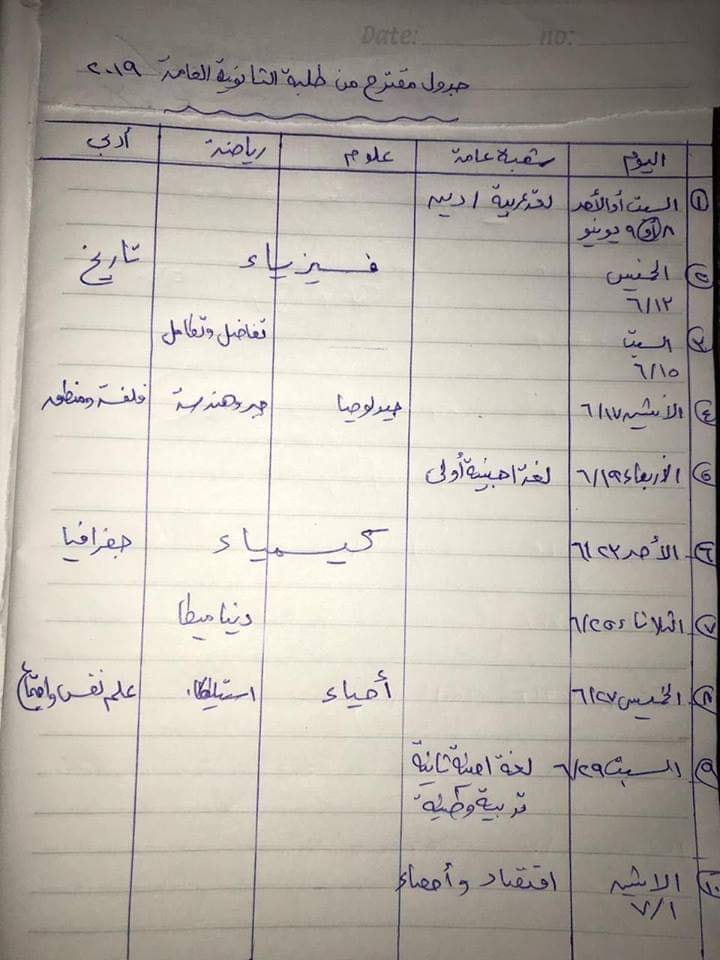 Date: no:
جدول مقترح من طلبة الثانوية العامة ٢٠١٩
اليوم شعبة عامة علوم رياضة أدبي
١ السبت أو الأحد لغة عربية / دين
٨ أو ٩ يونيو
فيزياء تاريخ
٢ الخميس
٦/١٣
٣ السبت تفاضل وتكامل
٦/١٥
٤ الأثنين ٦/١٧ جيولوجيا جبر وهندسة فلسفة ومنطق
٥ الأربعاء ٦/١٩ لغة اجنبية أولى
٦ الأحد ٦/٢٣ كيمياء جغرافيا
٧ الثلاثاء ٦/٢٥ ديناميكا
٨ الخميس ٦/٢٧ أحياء استاتيكا علم نفس واجتماع
٩ السبت ٦/٢٩ لغة اجنبية ثانية
تربية وطنية
١٠ الاثنين اقتصاد وأحصاء
٧/١